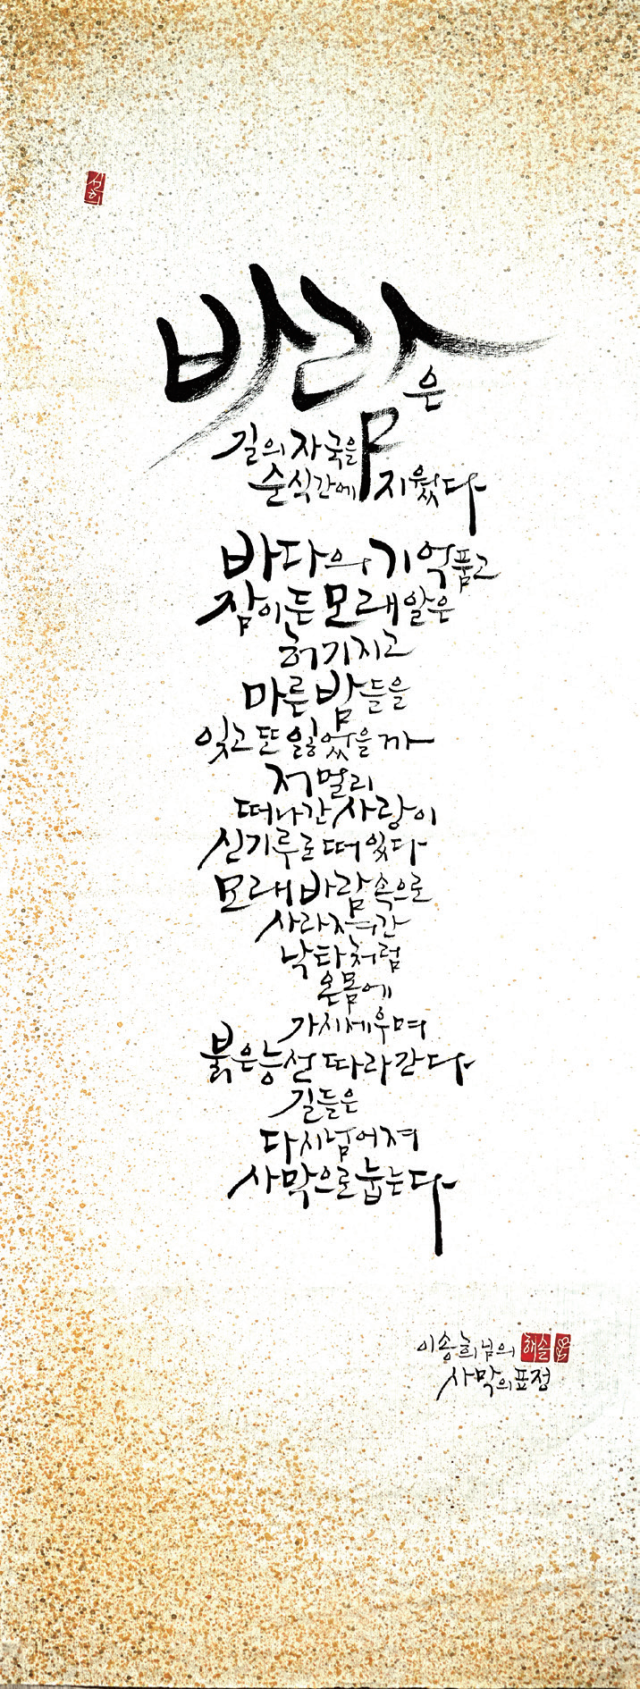 선희
바람은
길의 자국을
순식간에 지웠다
바다의 기억 품고
잠이 든 모래알은
허기지고
마른 밤들을
잊고 또 잃었을까
저 멀리
떠나간 사랑이
신기루로 떠 있다
모래바람 속으로
사라져 간
낙타처럼
온몸에
가시 세우며
붉은 능선 따라간다
길들은
다시 넘어져
사막으로 눕는다
이송희님의 해솔
사막의 표정